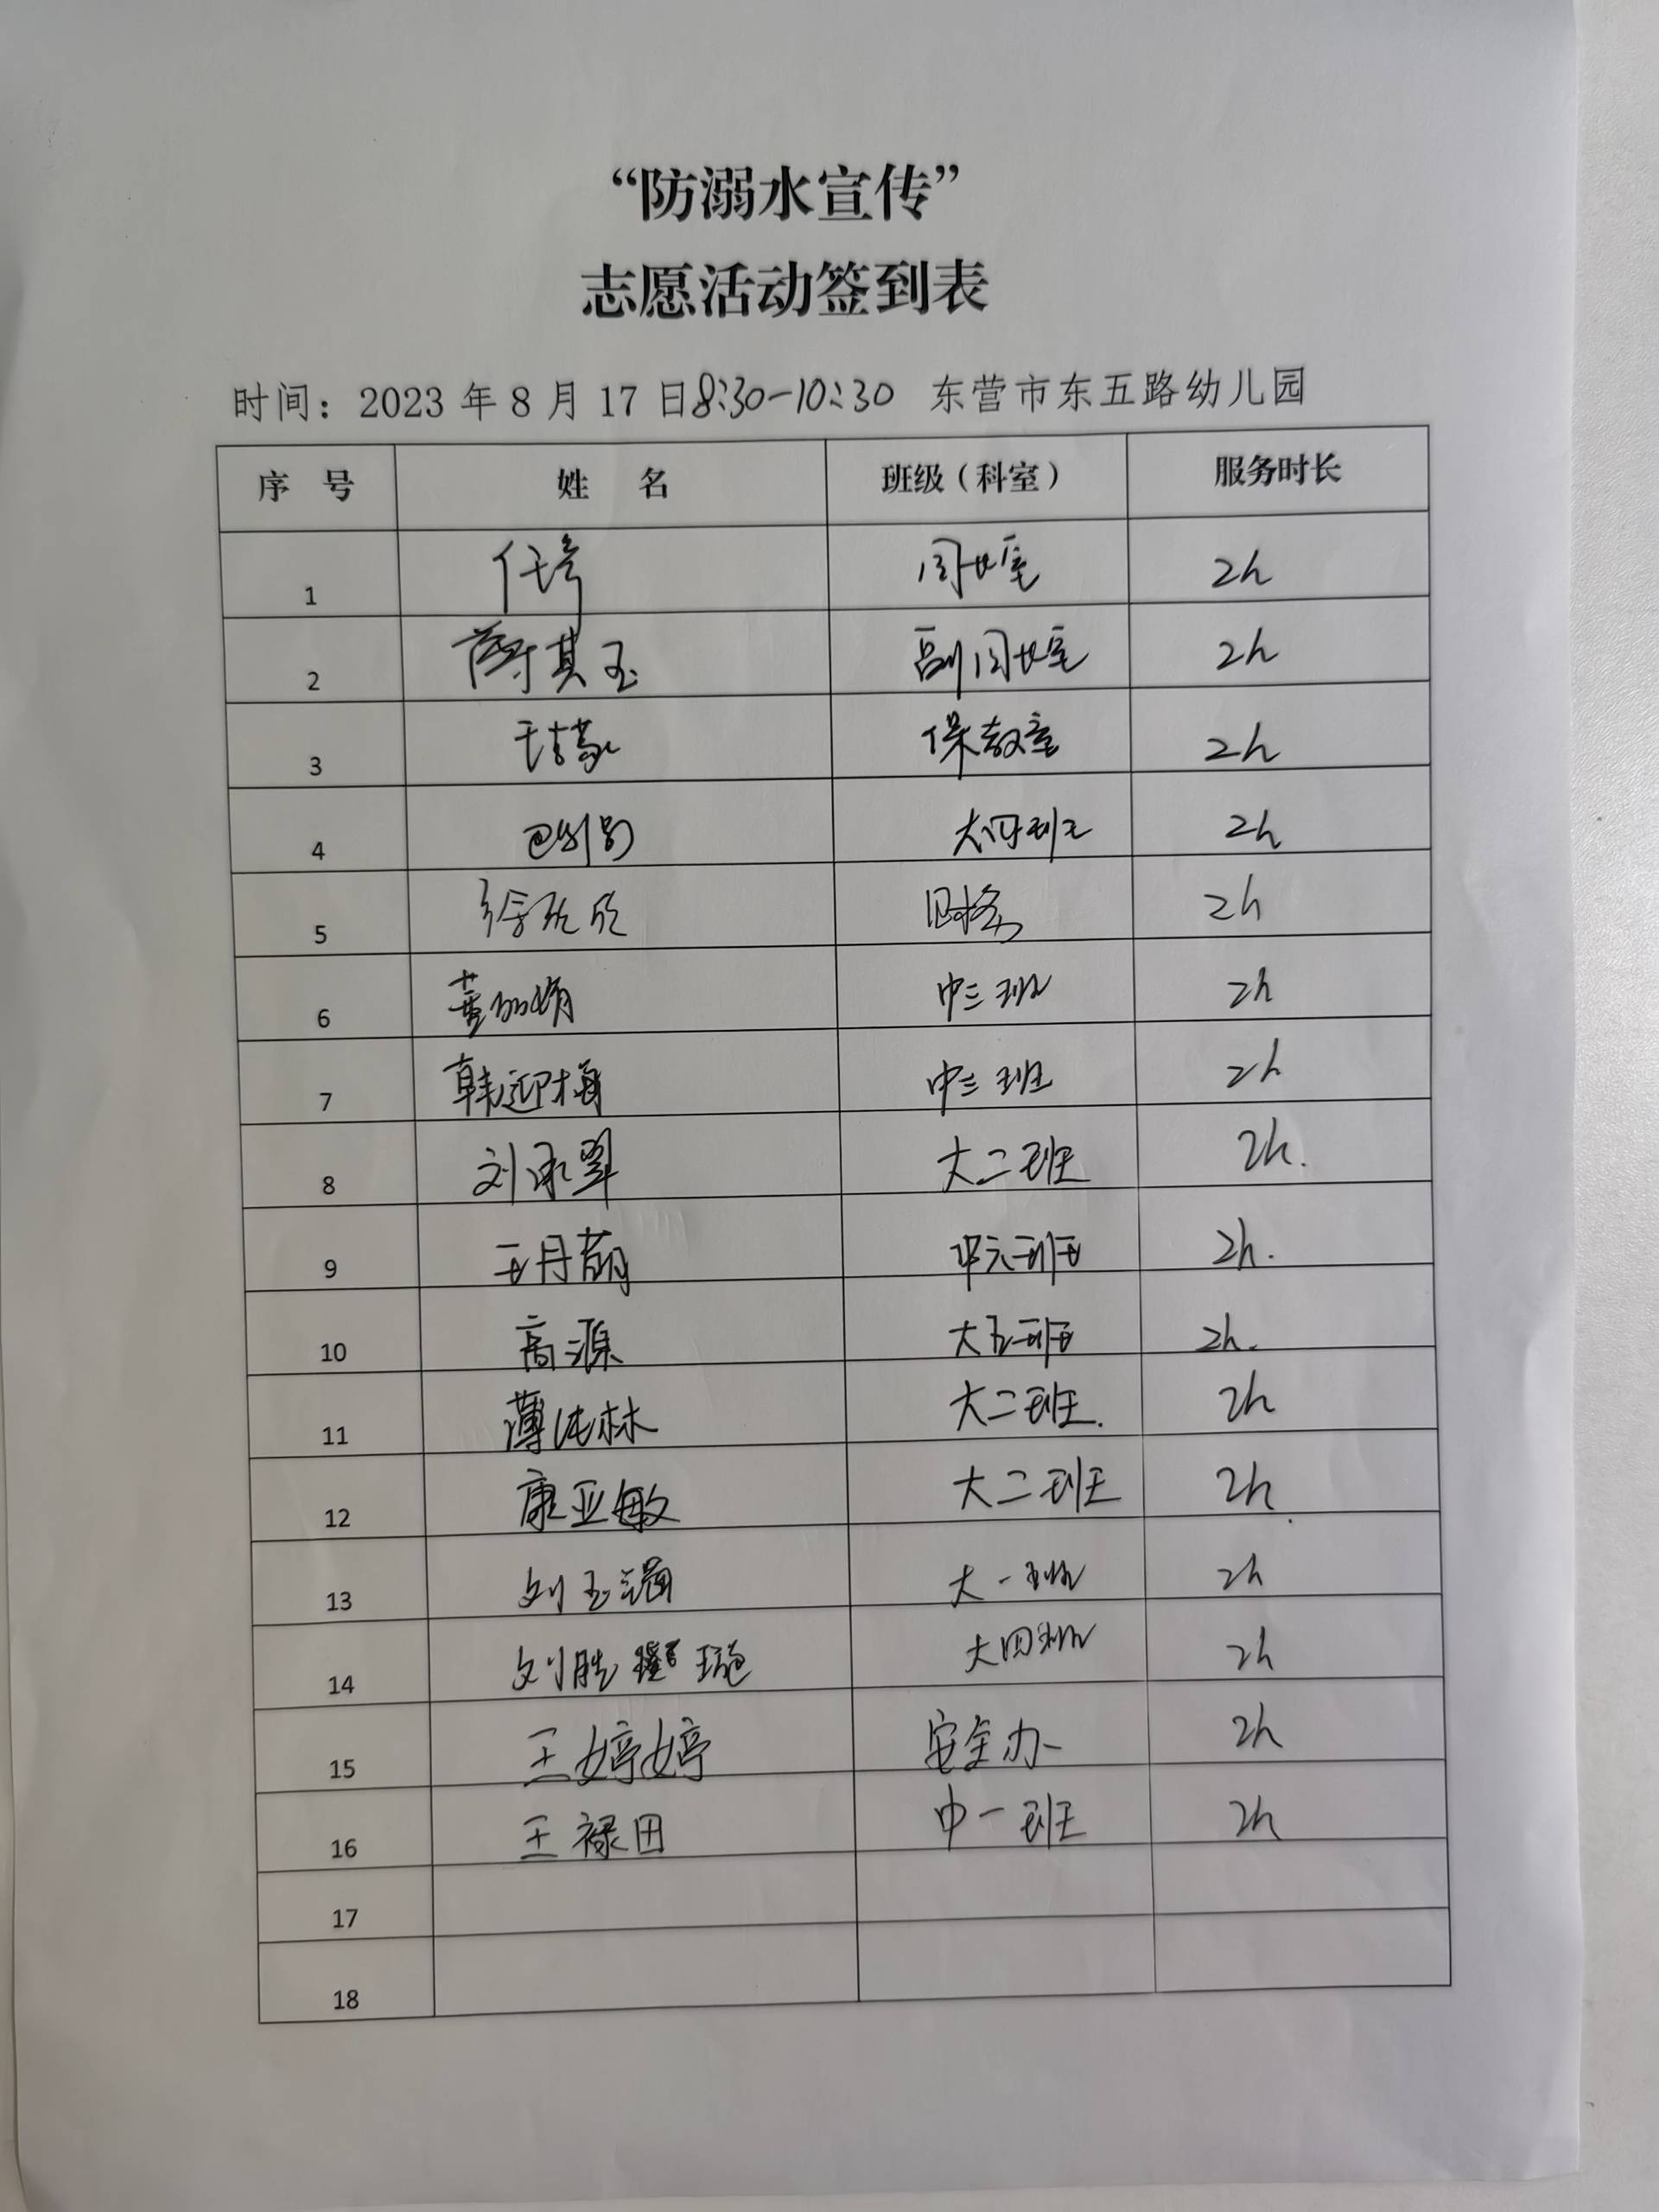 “防溺水宣传”
志愿活动签到表
时间：2023年8月17日8:30-10:30 东营市东五路幼儿园
序 号 姓 名 班级（科室） 服务时长
1 园长室 2h
2 其玉 副园长室 2h
3 保教室 2h
4 大四班 2h
5 徐欣欣 财务 2h
6 董丽娟 中三班 2h
7 韩迎梅 中三班 2h
8 刘承翠 大二班 2h.
9 王丹萌 中六班 2h.
10 高源 大五班 2h.
11 薄纯林 大二班. 2h
12 康亚敏 大二班 2h
13 刘玉涵 大一班 2h
14 刘胜 璇 大四班 2h
15 王婷婷 安全办 2h
16 王禄田 中一班 2h
17
18